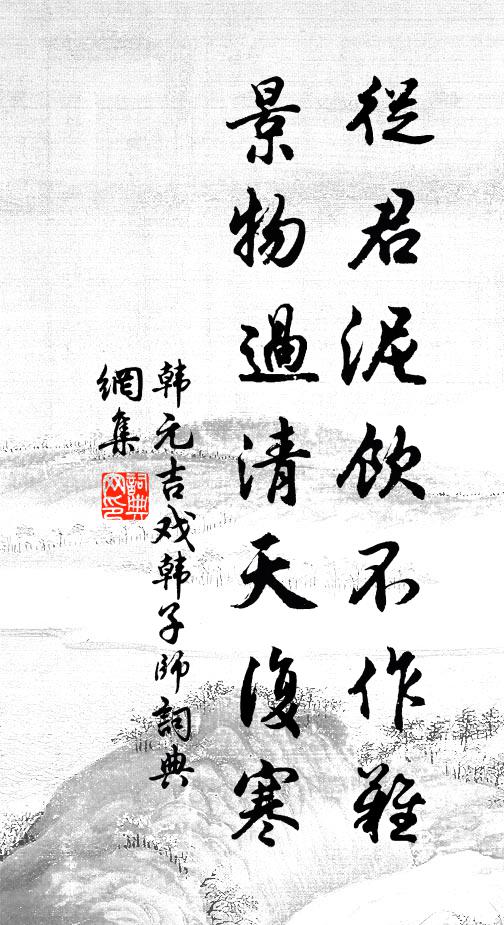 從君泥飲不作難
景物過清天復寒
韩元吉戏韩子師詞典
網集
詞典
网印